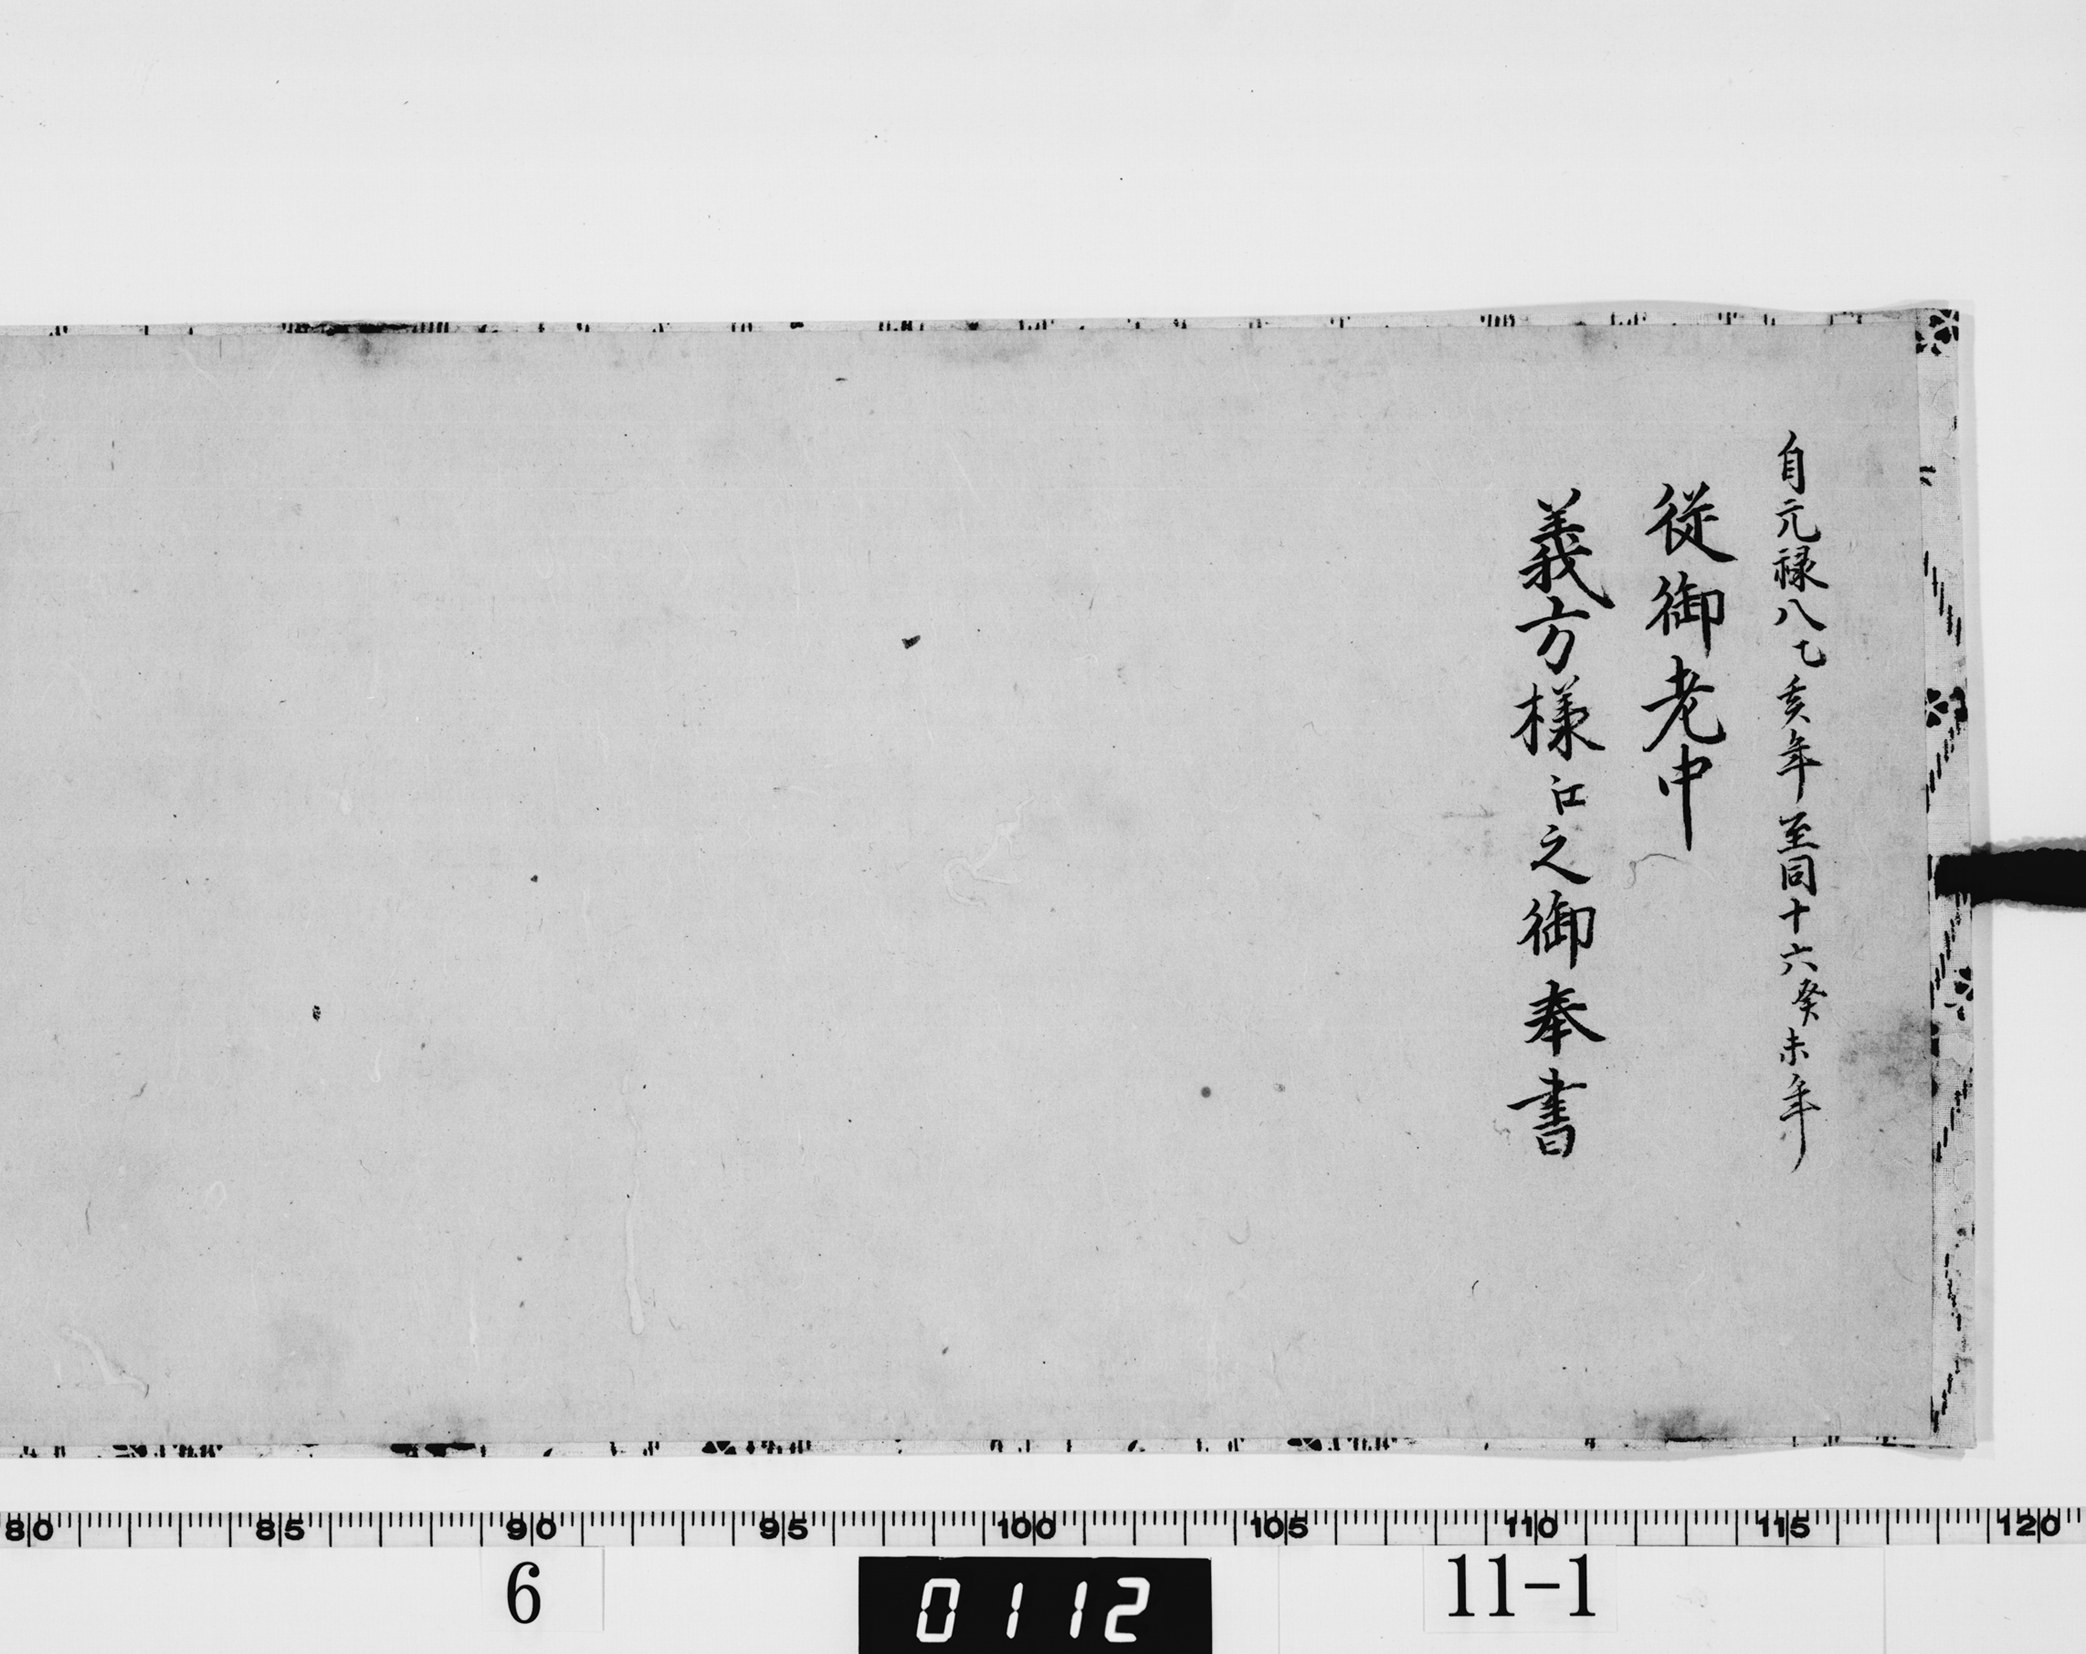 自元禄八乙亥年至同十六癸未年
従御老中
義方様江之御奉書
80 85 90 95 100 105 110 115 120
6 0112 11-1